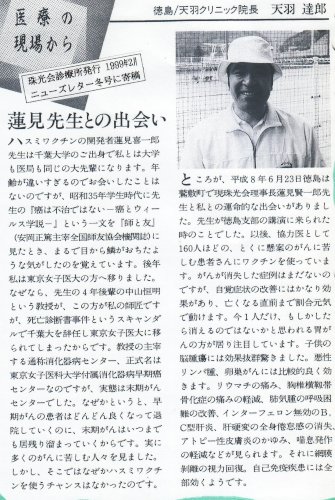 医療の
現場から
徳島/天羽クリニック院長　天羽 達郎
珠光会診療所発行　1999年2月
ニューズレター冬号に寄稿
蓮見先生との出会い
ハスミワクチンの開発者蓮見喜一郎
先生は千葉大学のご出身で私とは大学
も医局も同じの大先輩になります。年
齢が違いすぎるのでお会いしたことは
ないのですが、昭和35年学生時代に先
生の『癌は不治ではない－癌とウィー
ルス学説－』という一文を「師と友」
（安岡正篤主宰全国師友協会機関誌）に
見たとき、まるで目から鱗がおちたよ
うな気がしたのを覚えています。後年
私は東京女子医大の方へ移りました。
なぜなら、先生の4年後輩の中山恒明
という教授が、この方が私の師匠です
が、死亡診断書事件というスキャンダ
ルで千葉大を辞任し東京女子医大に移
られてしまったからです。教授の主宰
する通称消化器病センター、正式名は
東京女子医科大学付属消化器病早期癌
センターなのですが、実態は末期がん
センターでした。なぜかというと、早
期がんの患者はどんどん良くなって退
院していくのに、末期がんはいつまで
も居残り溜まっていくからです。実に
多くのがんに苦しむ人々を見ました。
しかし、そこではなぜかハスミワクチ
ンを使うチャンスはなかったのです。
ところが、平成8年6月23日徳島は
鷲敷町で現珠光会理事長蓮見賢一郎先
生と私との運命的な出会いがありまし
た。先生が徳島支部の講演に来られた
時のことでした。以後、協力医として
160人ほどの、とくに懸案のがんに苦
しむ患者さんにワクチンを使っていま
す。がんが消失した症例はまだないの
ですが、自覚症状の改善にはかなり効
果があり、亡くなる直前まで割合元気
で動けます。今1人だけ、もしかした
ら消えるのではないかと思われる胃が
んの方が居り注目しています。子供の
脳腫瘍には効果抜群驚きました。悪性
リンパ腫、卵巣がんには比較的良く効
きます。リウマチの痛み、胸椎横靱帯
骨化症の痛みの軽減、肺気腫の呼吸困
難の改善、インターフェロン無効のB、
C型肝炎、肝硬変の全身倦怠感の消失、
アトピー性皮膚炎のかゆみ、喘息発作
の軽減などが見られます。それに網膜
剥離の視力回復。自己免疫疾患には全
部効くようです。